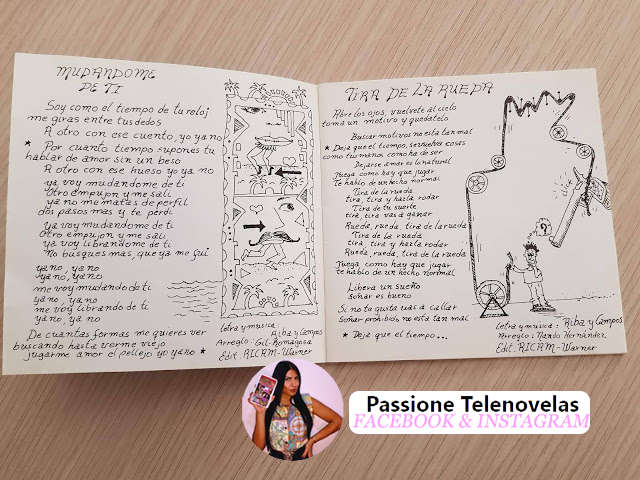 MUDANDOME
DE TI
Soy como el tiempo de tu reloj
me giras entre tus dedos
A otro con ese cuento, yo ya no
* Por cuanto tiempo supones tu
hablar de amor sin un beso
A otro con ese hueso yo ya no
ya voy mudandome de ti
otro empujon y me sali
ya no me matas de perfil
dos pasos mas y te perdi
ya voy mudandome de ti
Otro empujon y me sali
ya voy librandome de ti
No busques mas, que ya me fui
ya no, ya no
ya no, ya no
me voy mudando de ti
ya no, ya no
me voy librando de ti
ya no, ya no
De cuantas formas me quieres ver
buscando hasta verme viejo
jugarme amor el pellejo yo ya no *
Letra y musica: Riba y Campos
Arreglo: Gil-Romagosa
Edit. RICAM-Warner
TIRA DE LA RUEDA
Abre los ojos, vuelvete al cielo
toma un motivo y quedatelo
Buscar motivos no esta tan mal
* Deja que el tiempo, resuelva cosas
como tu manos como ha de ser
Dejarse amar es lo natural
Juega como hay que jugar
te hablo de un hecho normal
Tira de la rueda
tira, tira y hazla rodar
Tira de tu suerte
tira, tira vas a ganar
Rueda, rueda, tira de la rueda
Tira de la rueda
tira, tira y hazla rodar
Rueda, rueda, tira de la rueda
Juega como hay que jugar
te hablo de un hecho normal
Libera un sueño
soñar es bueno
Si no te gusta vas a callar
Soñar prohibido, no esta tan mal
* Deja que el tiempo...
CLIC
?
Letra y musica: Riba y Campos
Arreglo: Nando Hernández
Edit. RICAM-Warner
Passione Telenovelas
FACEBOOK & INSTAGRAM